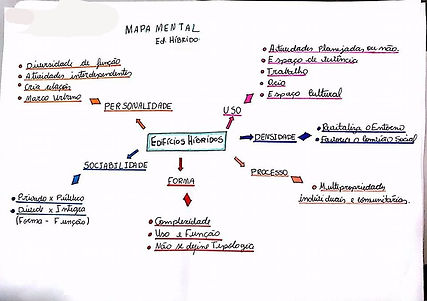 MAPA MENTAL
Ed. Híbrido.
• Diversidade de função
• Atividades interdependentes
• Cria relações
• Marco Urbano
PERSONALIDADE
• Atividades Planejadas ou não.
• Espaço de
• Trabalho
• Ócio
• Espaço Cultural
USO
EDIFÍCIOS HÍBRIDOS
DENSIDADE
• Revitaliza o Entorno
• Favorece o Convívio Social
SOCIABILIDADE
• Privado x Público
• Divide x Integra
(Forma - Função)
FORMA
• Complexidade
• Uso e Função
• Não se define Tipologia
PROCESSO
• Multipropriedades
individuais e comunitárias.